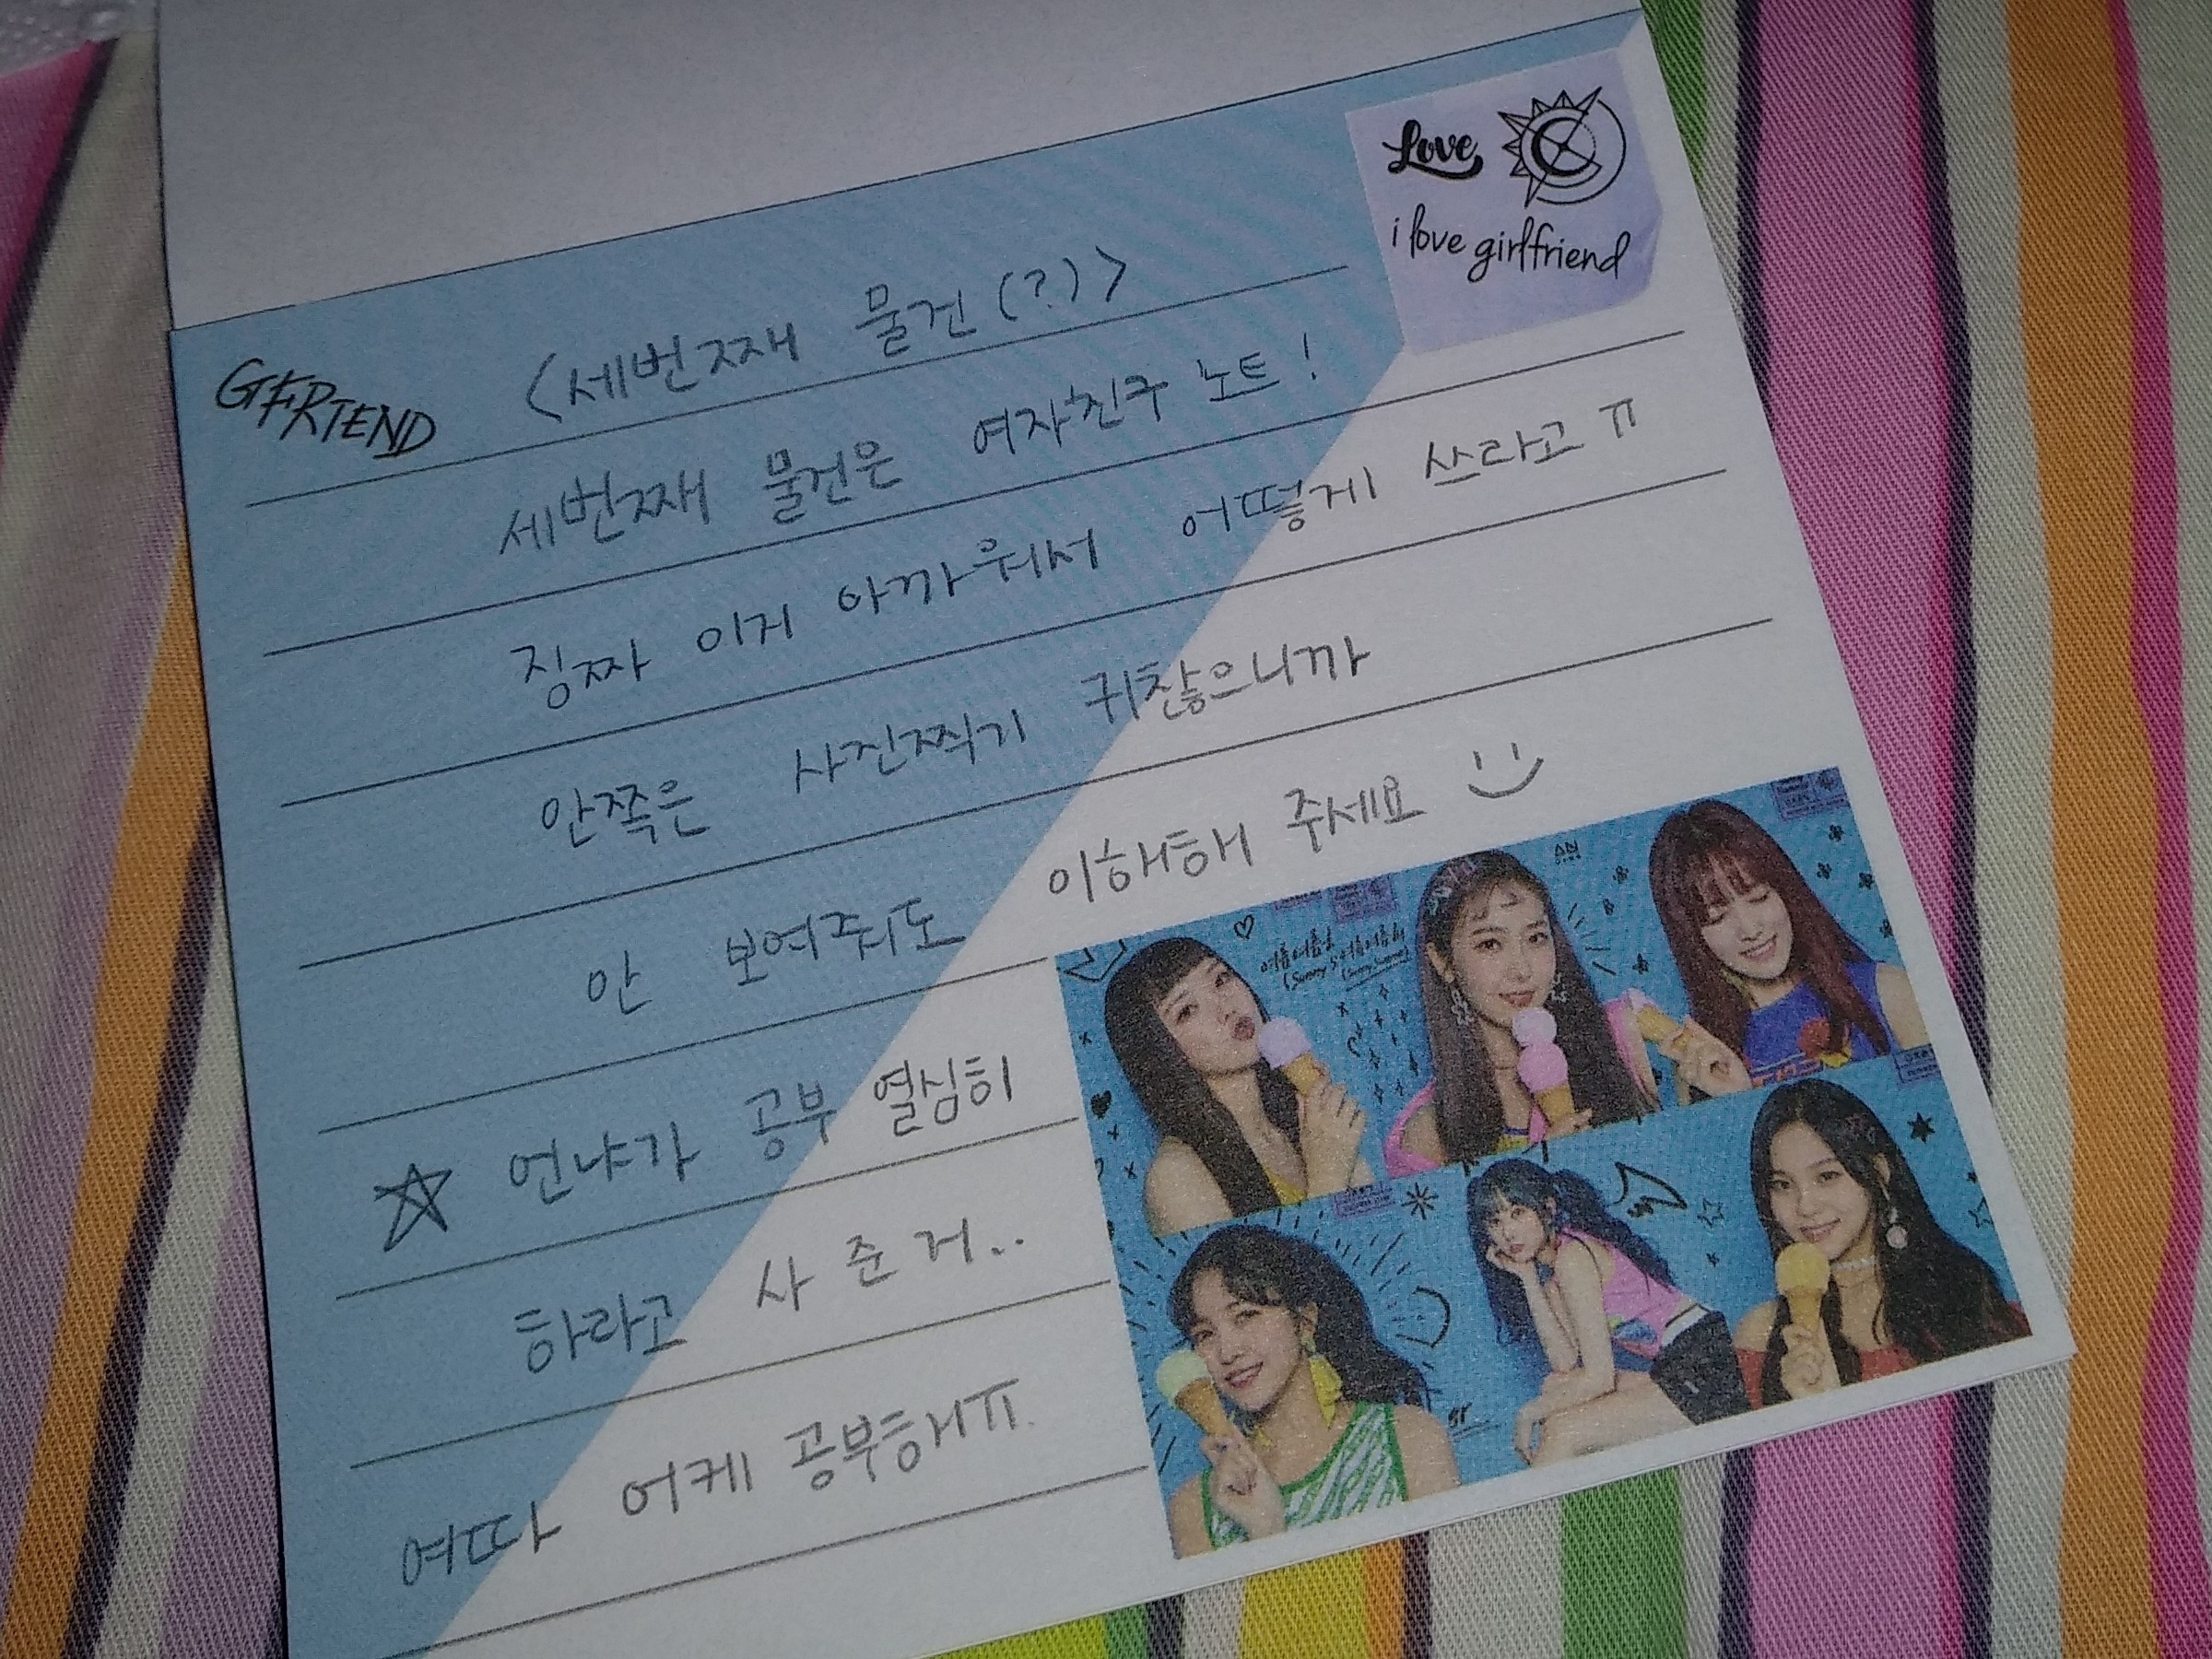 Love
i love girlfriend
GFRIEND
<세번째 물건(?)>
세번째 물건은 여자친구 노트!
징짜 이거 아까워서 어떻게 쓰라고 ㅠ
안쪽은 사진찍기 귀찮으니까
안 보여줘도 이해해 주세요
언냐가 공부 열심히
하라고 사 준 거..
여따 어케 공부해ㅠ.
여름여름해
(Sunny Summer)